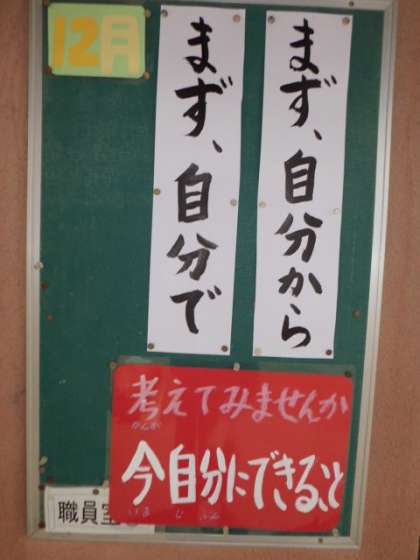 12月
まず、自分から
まず、自分で
考えてみませんか
かんが
今自分にできること
いま じ ぶん
職員室